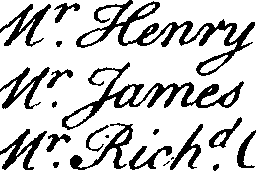 Mr. Henry
Mr. James
Mr. Richd. (